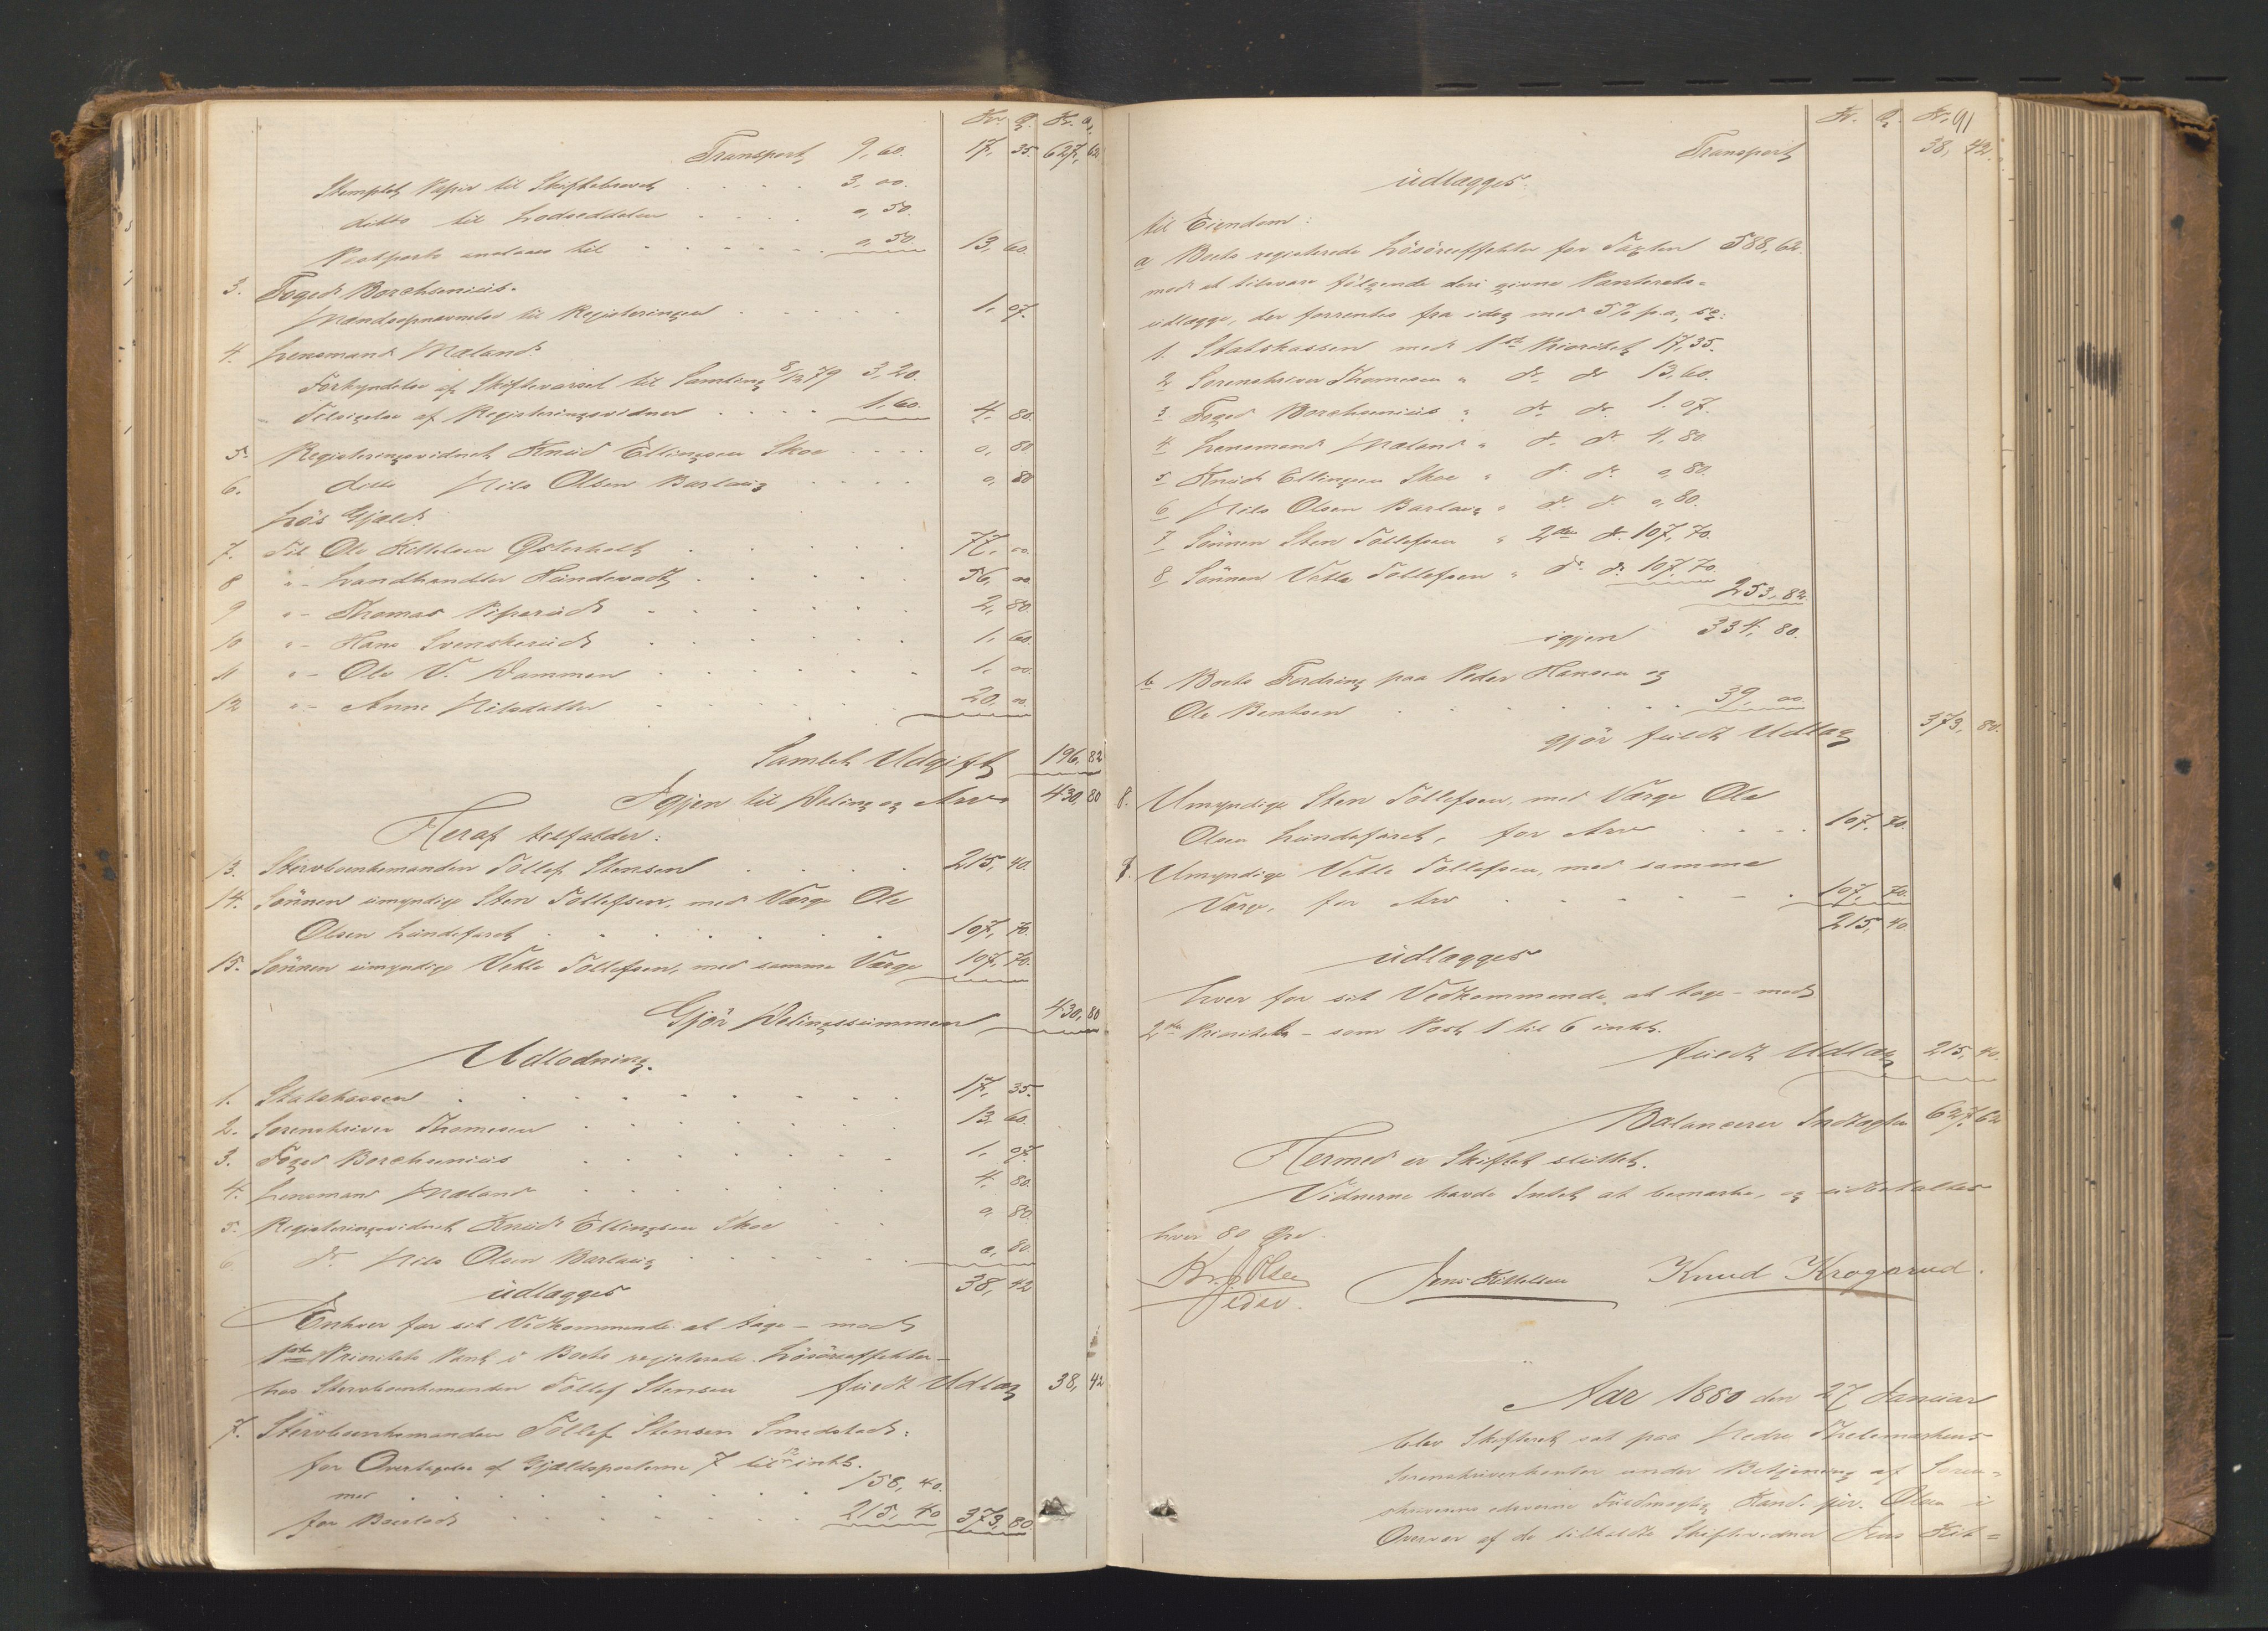 Kr. Ø. Kr. Ø.
Transport 9,60. 17, 35. 627, 62
Stemplet Papir til Skiftebrevet 3,00.
ditto til Lodseddelen 0,50.
Postporto ansloes til 0,50. 13, 60.
3. Foged Borchsenius.
Mandsopnævnelse til Registeringen 1, 07.
4. Lensmand Mæland:
Forkyndelse af Skiftevarsel til Samling 8/12 79 3,20.
Tilsigelse af Registeringsvidner 1,60. 4, 80.
5. Registeringsvidnet Knud Ellingsen Skoe 0, 80
6. ditto Nils Olsen Barlaug 0, 80
Løs Gjæld:
7. Til Ole Kittelsen Østerholt 77, 00
8 "- Landhandler Hundevadt 56, 00
9 "- Thomas Piperud 2, 80.
10 "- Hans Svenskerud 1, 60.
11 "- Ole V. Dammen 1, 00
12 "- Anne Nilsdatter 20, 00
Samlet Udgift 196, 82
Igjen til Deling og Arv 430, 80
Heraf tilfalder:
13. Stervboenkemanden Tollef Stensen 215, 40.
14. Sønnen umyndige Sten Tollefsen, med Værge Ole
Olsen Lundefaret 107, 70.
15. Sønnen umyndige Vetle Tollefsen, med samme Værge 107, 70.
Gjør Delingssummen 430, 80
Udlodning.
1. Statskassen 17, 35.
2. Sorenskriver Thomesen 13, 60.
3. Foged Borchsenius 1, 07.
4. Lensmand Mæland 4, 80.
5. Registeringsvidnet Knud Ellingsen Skoe 0, 80.
6. do. Nils Olsen Barlaug 0, 80.
udlægges 38, 42
Enhver for sit Vedkommende at tage – med
1ste Prioritets Pant i Boets registerede Løsøreeffekter –
hos Stervboenkemanden Tollef Stensen fuldt Udlæg 38, 42
7. Stervboenkemanden Tollef Stensen Smedstad:
for Overtagelse af Gjældsposterne 7 til 12 inkl.
med 158, 40.
for Boeslod 215, 40 373, 80
Kr. Ø. Kr. 91
Transport 38, 42.
udlægges
til Eiendom:
a Boets registerede Løsøreeffekter for Taxten 588,62.
mod at tilsvare følgende deri givne Panterets-
udlægge, der forrentes fra idag med 5% p.a., sc:
1. Statskassen med 1ste Prioritet 17,35.
2 Sorenskriver Thomesen " do. do 13,60.
3 Foged Borchsenius " do. do. 1.07.
4 Lensmand Mæland " do. do. 4,80.
5 Knud Ellingsen Skoe " do. do. 0,80.
6 Nils Olsen Barlaug " do. do. 0,80.
7 Sønnen Sten Tollefsen " 2den do. 107,70.
8 Sønnen Vetle Tollefsen " do. do. 107,70
253,82.
igjen 334, 80.
b Boets Fordring paa Peder Hansen og
Ole Bentsen 39, 00.
gjør fuldt Udlæg 373, 80.
8. Umyndige Sten Tollefsen, med Værge Ole
Olsen Lundefaret, for Arv 107, 70.
9. Umyndige Vetle Tollefsen, med samme
Værge, for Arv 107, 70.
215, 40
udlægges
hver for sit Vedkommende, at tage – med
2den Prioritet – som Post 1 til 6 inkl.
fuldt Udlæg 215, 40.
Balancerer Indtægten 627, 62
Hermed er Skiftet sluttet.
Vidnerne havde Intet at bemærke, og udbetaltes
hver 80 Øre.
Kr. J. Olsen Jens Kittelsen Knud Krogarud.
edsv.
Aar 1880 den 27 Januar
blev Skifteret sat paa Nedre Thelemarkens
Sorenskriverkontor under Betjening af Soren-
skriverens edsvorne Fuldmægtig Kand. jur. Olsen i
Overvær af de tilkaldte Skiftevidner Jens Kit-